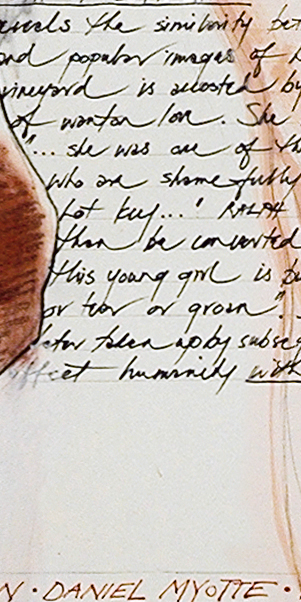 the similarity bet
and popular images of
vineyard is accosted by
of wanton love. She
"... she was one of th
who are shamefully
RALPH
than be converted
this young girl is
or tear or groan".
taken up by subseq
ffect humanity with
N · DANIEL MYOTTE ·